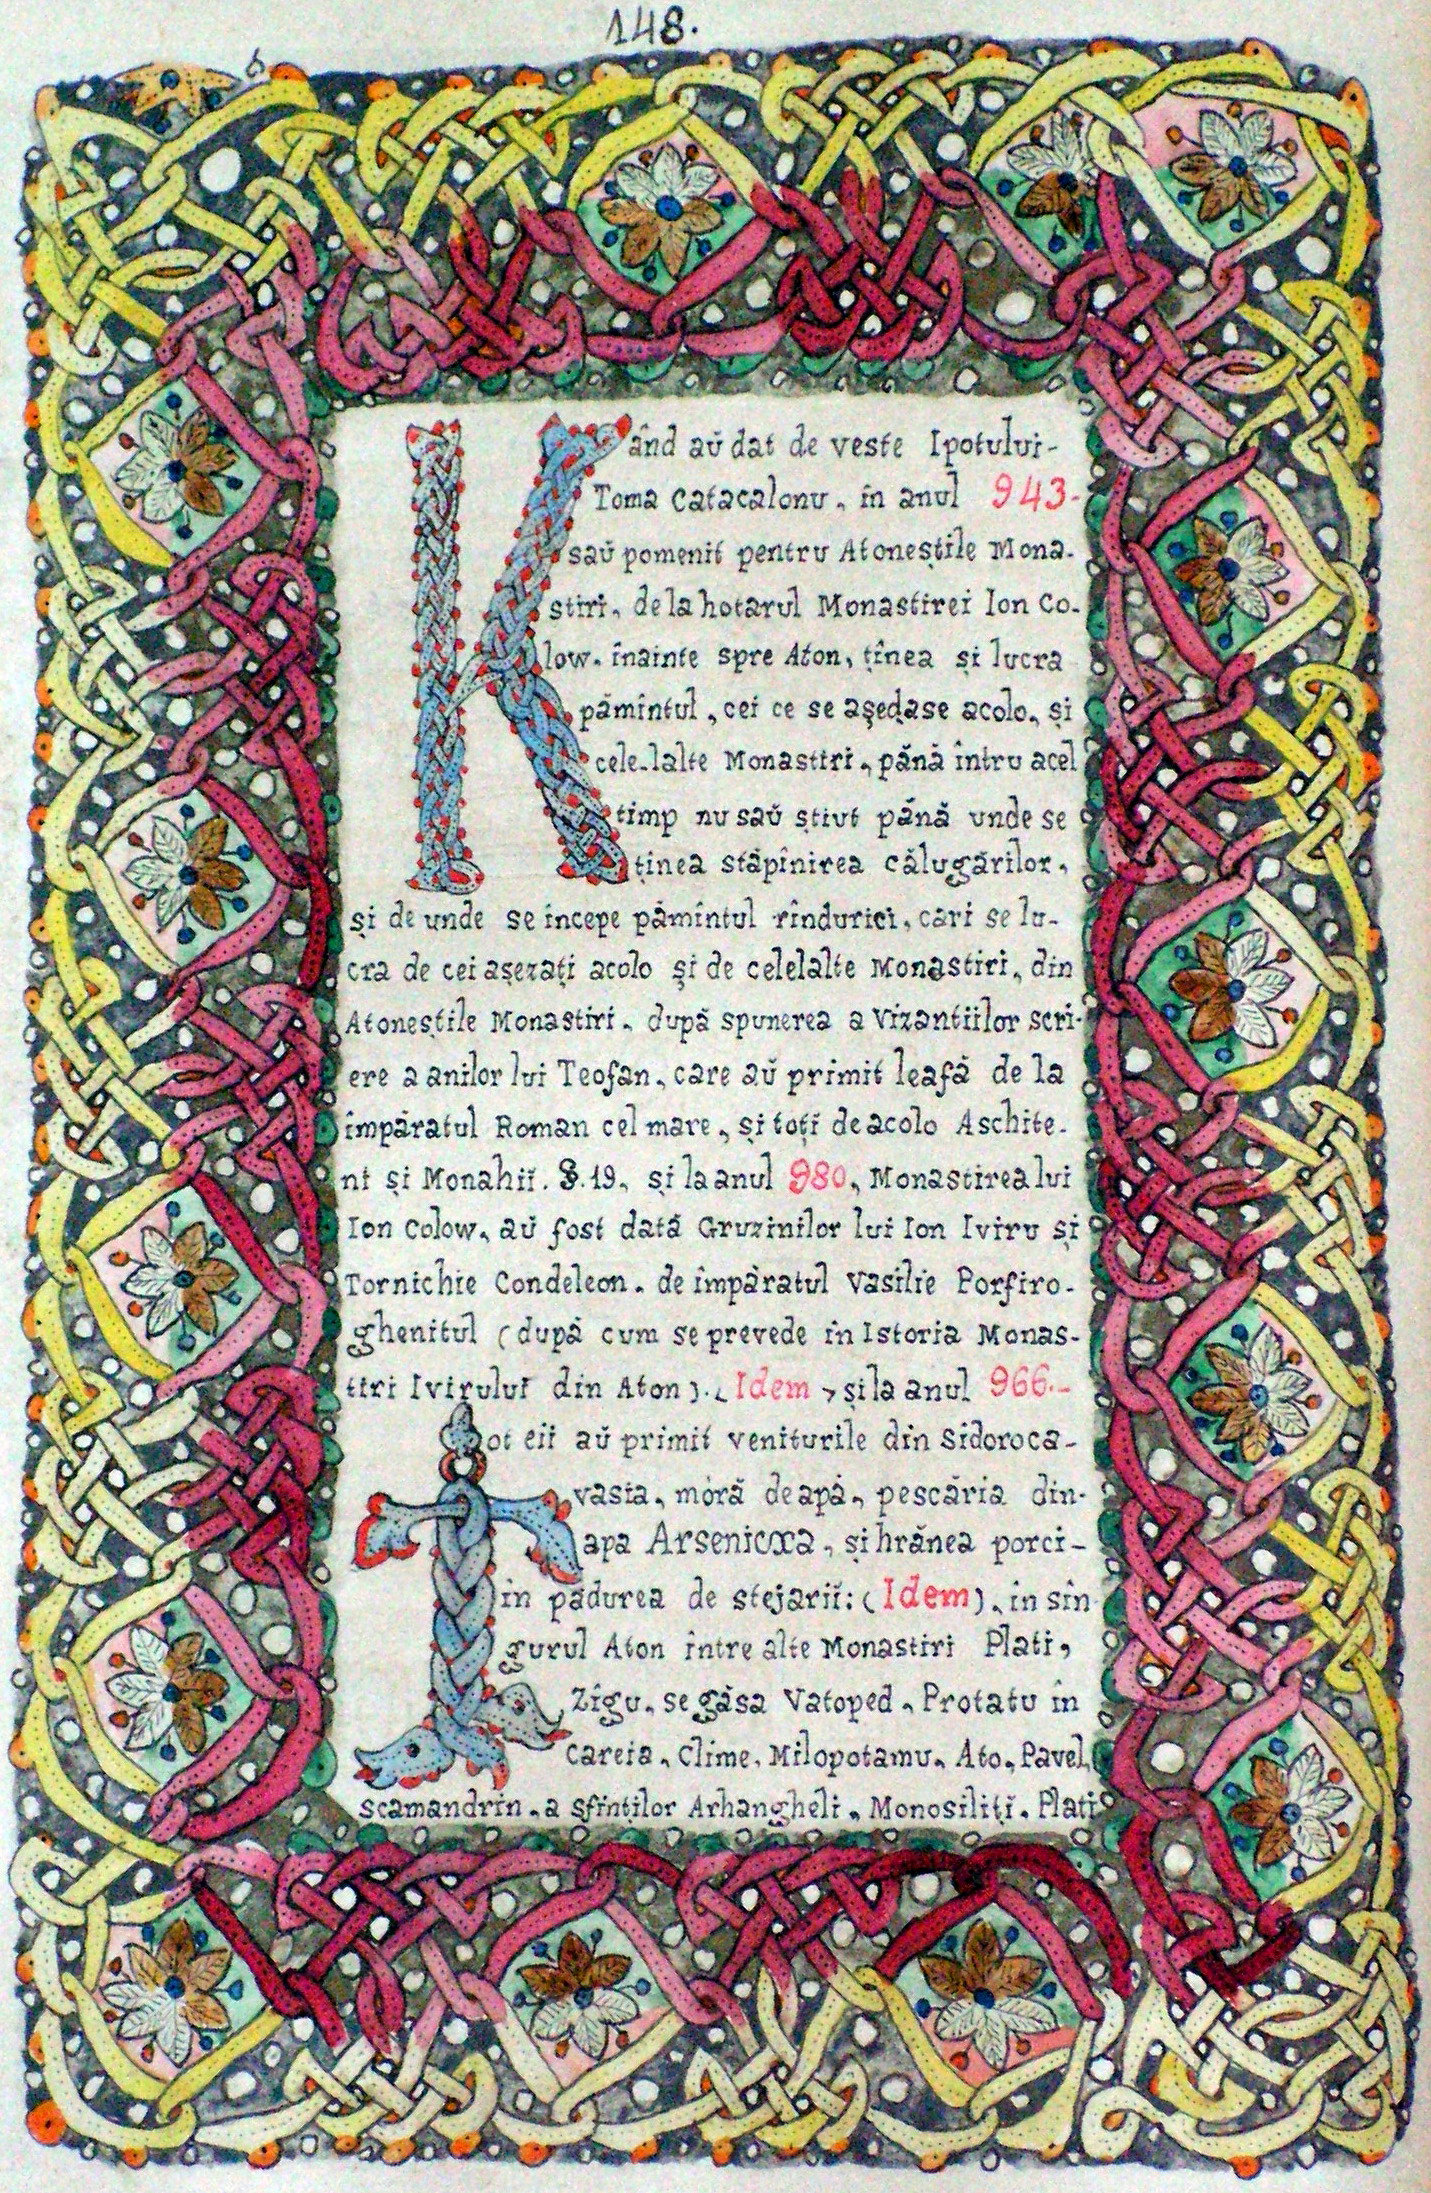 148.
Kând aŭ dat de veste Ipotului-
Toma Catacalonu, în anul 943-
saŭ pomenit pentru Atoneștile Mona-
stiri, de la hotarul Monastirei Ion Co-
low, înainte spre Aton, ținea și lucra
pămîntul, cei ce se așeḑase acolo, și
cele-lalte Monastiri, pănă întru acel
timp nu saŭ știut pănă unde se
ținea stăpînirea călugărilor,
și de unde se începe pămîntul rîndurici, cari se lu-
cra de cei așezați acolo și de celelalte Monastiri, din
Atoneștile Monastiri, după spunerea a Vizantiilor scri-
ere a anilor lui Teofan, care aŭ primit leafă de la
împăratul Roman cel mare, și toți de acolo Aschite-
ni și Monahiĭ. §.19, și la anul 980, Monastirea lui
Ion Colow, aŭ fost dată Gruzinilor lui Ion Iviru și
Tornichie Condeleon, de împăratul Vasilie Porfiro-
ghenitul (după cum se prevede în Istoria Monas-
tiri Ivirului din Aton). (Idem) și la anul 966.-
Tot eii aŭ primit veniturile din Sidoroca-
vasia, moră de apă, pescăria din-
apa Arsenicxa, și hrănea porci-
în pădurea de stejariĭ: (Idem), in sîn
gurul Aton între alte Monastiri Plati,
Zigu, se găsa Vatoped, Protatu în
Careia, Clime, Milopotamu, Ato, Pavel,
Scamandrin, a sfinților Arhangheli, Monosiliți, Plati